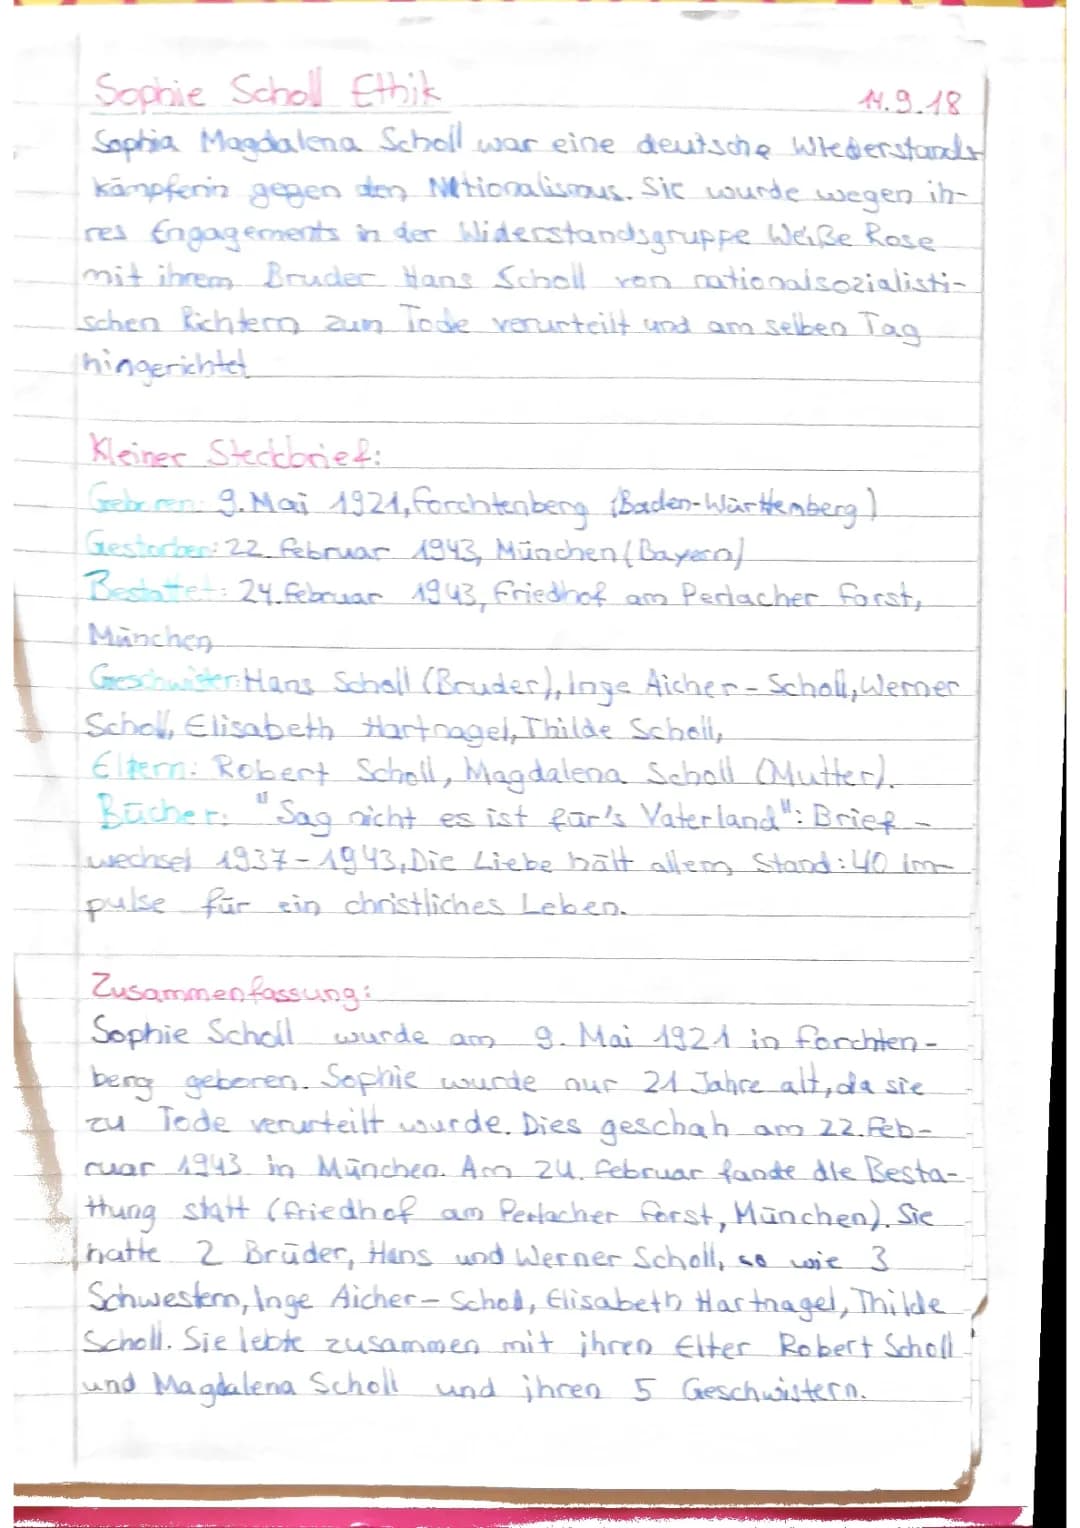 Sophie Scholl Ethik 14.9.18
Sophia Magdalena Scholl war eine deutsche Wiederstands
kämpferin gegen den Nationalismus. Sie wurde wegen ih-
res Engagements in der Widerstandsgruppe Weiße Rose
mit ihrem Bruder Hans Scholl von nationalsozialisti-
schen Richtern zum Tode verurteilt und am selben Tag
hingerichtet
Kleiner Steckbrief:
Geboren: 9. Mai 1921, Forchtenberg (Baden-Württemberg)
Gestorben: 22. Februar 1943, München (Bayern)
Bestattet: 24. Februar 1943, Friedhof am Perlacher Forst,
München
Geschwister: Hans Scholl (Bruder), Inge Aicher-Scholl, Werner
Scholl, Elisabeth Hartnagel, Thilde Scholl,
Eltern: Robert Scholl, Magdalena Scholl (Mutter).
Bücher: "Sag nicht es ist für's Vaterland": Brief-
wechsel 1937-1943, Die Liebe hält allem Stand: 40 Im-
pulse für ein christliches Leben.
Zusammenfassung:
Sophie Scholl wurde am 9. Mai 1921 in Forchten-
berg geboren. Sophie wurde nur 21 Jahre alt, da sie
zu Tode verurteilt wurde. Dies geschah am 22. Feb-
ruar 1943 in München. Am 24. Februar fande die Besta-
ttung statt (Friedhof am Perlacher Forst, München). Sie
hatte 2 Brüder, Hans und Werner Scholl, so wie 3
Schwestern, Inge Aicher-Scholl, Elisabeth Hartnagel, Thilde
Scholl. Sie lebte zusammen mit ihren Elter Robert Scholl
und Magdalena Scholl und ihren 5 Geschwistern.